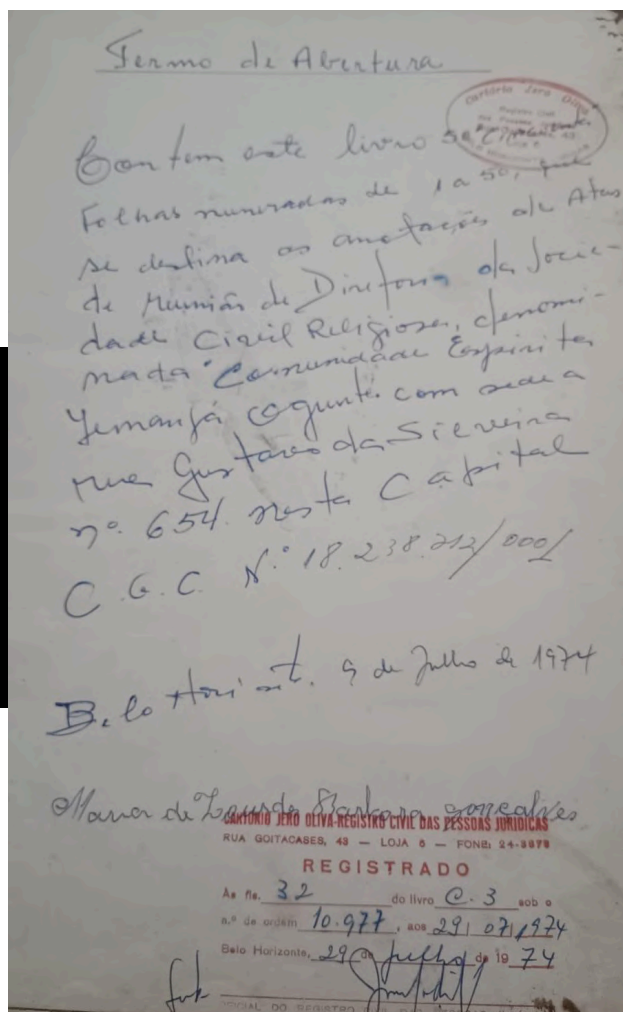 Termo de Abertura
Cartório Jero Oliva
Contem este livro 50
Folhas numeradas de 1 a 50, que
se destina as anotações de Atas
de reunião de Diretoria da Socie-
dade Civil Religiosa, denomi-
nada Comunidade Espirita
Yemanjá com sede a
rua Gustavo da Silveira
nº. 654. nesta Capital
C.G.C. N.º 18.238.212/0001
Belo Horizont. 9 de Julho de 1974
Maria de Lourdes Barbara gonçalves
CARTÓRIO JERO OLIVA-REGISTRO CIVIL DAS PESSOAS JURIDICAS
RUA GOITACASES, 43 — LOJA 6 — FONE: 24-3878
REGISTRADO
Às fls. 32 do livro C.3 sob o
n.º de ordem 10.977, aos 29/07/1974
Belo Horizonte, 29 de Julho de 1974
OFICIAL DO REGISTRO